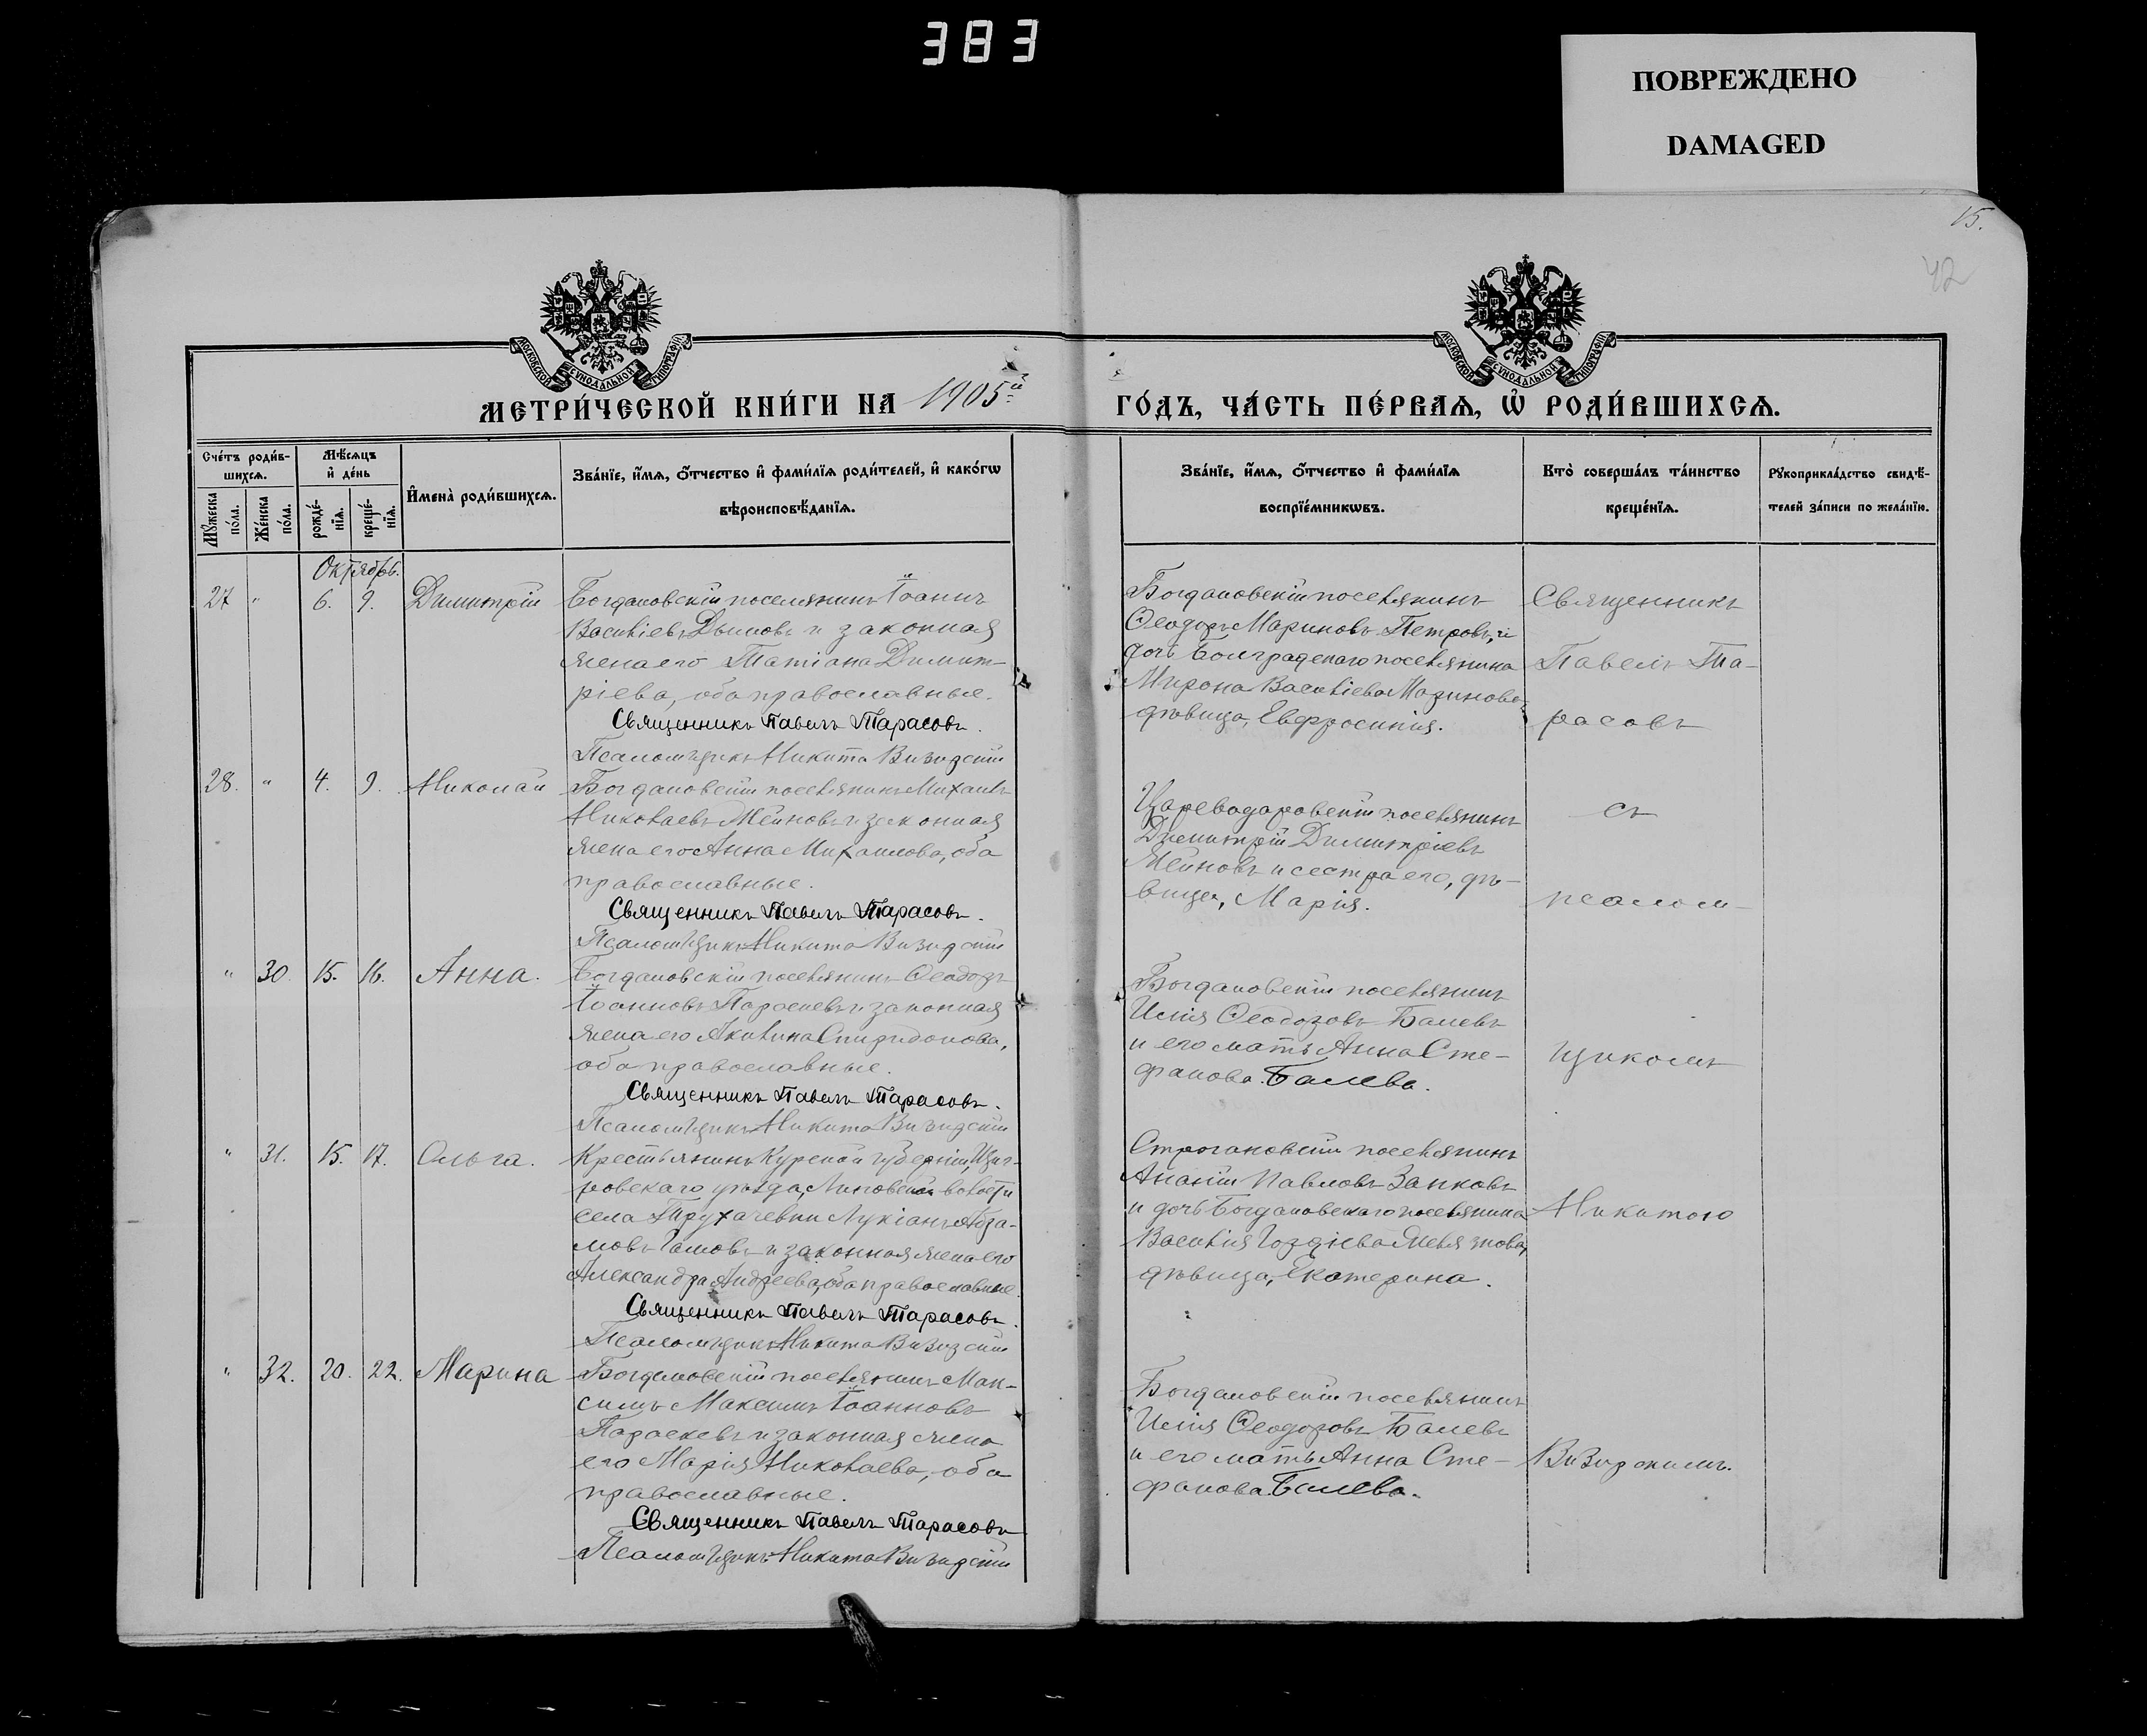 383
ПОВРЕЖДЕНО
DAMAGED
15.
42
МОСКОВСКОЙ СУНОДАЛЬНОЙ ТИПОГРАФІИ
МОСКОВСКОЙ СУНОДАЛЬНОЙ ТИПОГРАФІИ
МЕТРИ́ЧЕСКОЙ КНИ́ГИ НА 1905й
ГО́ДЪ, ЧА́СТЬ ПЕ́РВАѦ, Ѡ҆ РОДИ́ВШИХСѦ.
Сче́тъ роди́в-
шихсѧ.
Мѣ́сѧцъ
и҆ де́нь
Мꙋ́жеска по́ла.
Же́нска по́ла.
рожде́-нїѧ.
креще́-нїѧ.
И҆мена̀ роди́вшихсѧ.
Зва́нїе, и҆́мѧ, ѻ҆́тчество и҆ фами́лїѧ роди́телей, и҆ како́гѡ
вѣроисповѣ́данїѧ.
Зва́нїе, и҆́мѧ, ѻ҆́тчество и҆ фами́лїѧ
воспрїе́мникѡвъ.
Кто̀ соверша́лъ та́инство
креще́нїѧ.
Рꙋкоприкла́дство свидѣ́-
телей за́писи по жела́нїю.
Октябрь.
27 " 6. 9. Димитрій
Богдановскій поселянинъ Іоаннъ
Василіевъ Дымовъ и законная
жена его Татіана Димит-
ріева, оба православные.
Священникъ Павелъ Тарасовъ.
Псаломщикъ Никита Визирскій
Богдановскій поселянинъ
Ѳеодоръ Мариновъ Петровъ, и
дочь Болградскаго поселянина
Мирона Василіева Маринова,
дѣвица, Евфросинія.
Священникъ
Павелъ Та-
расовъ
28. " 4. 9. Николай
Богдановскій поселянинъ Михаилъ
Николаевъ Мѣйновъ и законная
жена его Анна Михаилова, оба
православные.
Священникъ Павелъ Тарасовъ.
Псаломщикъ Никита Визирскій
Цареводаровскій поселянинъ
Димитрій Димитріевъ
Мѣйновъ и сестра его, дѣ-
вица, Марія.
съ
псалом-
" 30. 15. 16. Анна.
Богдановскій поселянинъ Ѳеодоръ
Іоанновъ Параскевъ и законная
жена его Акилина Спиридонова,
оба православные.
Священникъ Павелъ Тарасовъ.
Псаломщикъ Никита Визирскій
Богдановскій поселянинъ
Илія Ѳеодоровъ Балевъ
и его мать Анна Сте-
фанова Балева.
щикомъ
" 31. 15. 17. Ольга.
Крестьянинъ Курской губерніи, Щиг-
ровскаго уѣзда, Липовской волости
села Трухачевки Лукіанъ
и законная жена его
Александра Андреева, оба православные.
Священникъ Павелъ Тарасовъ.
Псаломщикъ Никита Визирскій
Строгановскій поселянинъ
Ананій Павловъ Занковъ
и дочь Богдановскаго поселянина
Василія
дѣвица, Екатерина.
Никитою
" 32. 20. 22. Марина
Богдановскій поселянинъ Мак-
симъ Максимъ Іоанновъ
Параскевъ и законная жена
его Марія Николаева, оба
православные.
Священникъ Павелъ Тарасовъ
Псаломщикъ Никита Визирскій
Богдановскій поселянинъ
Илія Ѳеодоровъ Балевъ
и его мать Анна Сте-
фанова Балева.
Визирскимъ.